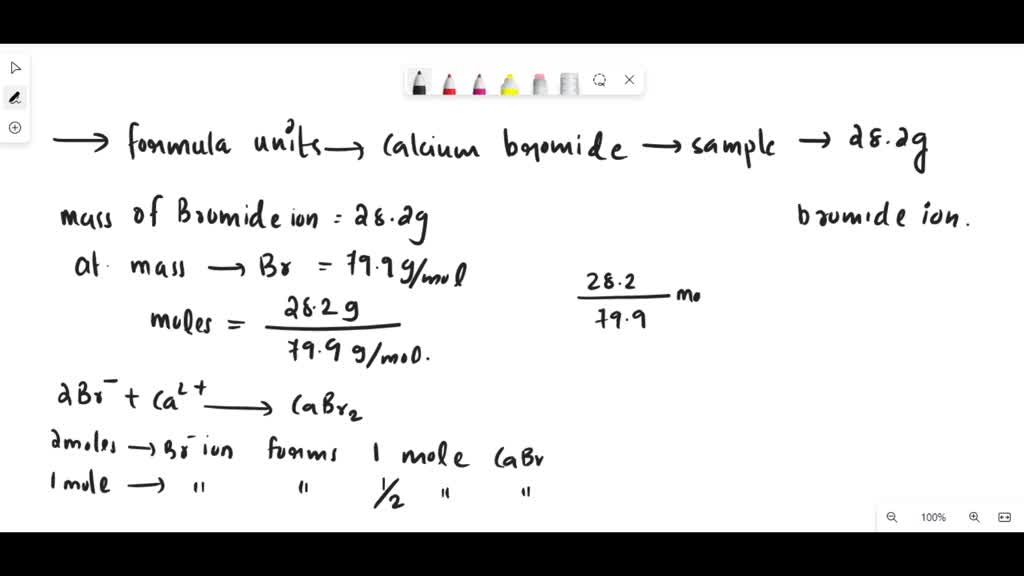 → formula units → calcium bromide → sample → 28.2g
mass of Bromide ion = 28.2g
bromide ion.
at. mass → Br = 79.9 g/mol
moles = 28.2 g / 79.9 g/mol.
28.2 / 79.9 mo
2Br⁻ + Ca²⁺ → CaBr₂
2moles → Br⁻ ion forms 1 mole CaBr
1 mole → " " 1/2 " "
100%